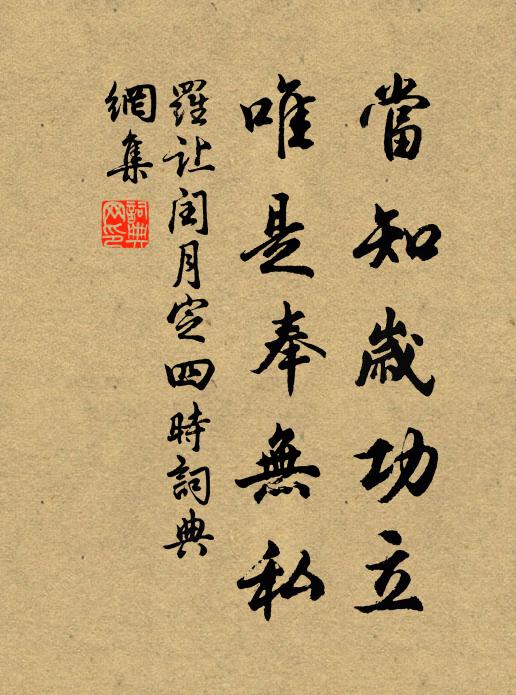 當知歲功立
唯是奉無私
羅让閏月定四時詞典
網集
詞典
网印